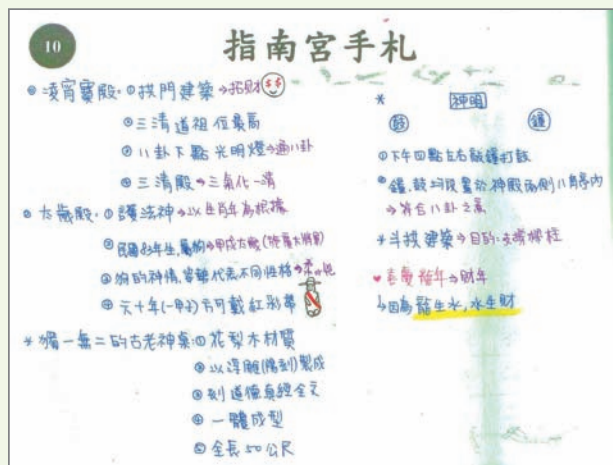 10
指南宮手札
◎凌霄寶殿:①拱門建築→招財
②三清道祖位最高
③八卦下點光明燈→通八卦
④三清殿→三氣化一清
◎太歲殿:①護法神→以生肖年為根據
②民國83年生,屬狗→甲戌太歲
③狗的神情,姿態代表不同性格
④六十年(一甲子)方可戴紅彩帶
*獨一無二的古老神桌:①花梨木材質
②以浮雕(陽刻)製成
③刻道德真經全文
④一體成型
⑤全長50公尺
* 神明
鼓 鐘
①下午四點左右敲鐘打鼓
②鐘、鼓均設置於神殿兩側八角亭內
→符合八卦之意
*斗拱建築→目的:支撐樑柱
♥春慶龍年→財年
↳因為龍生水,水生財